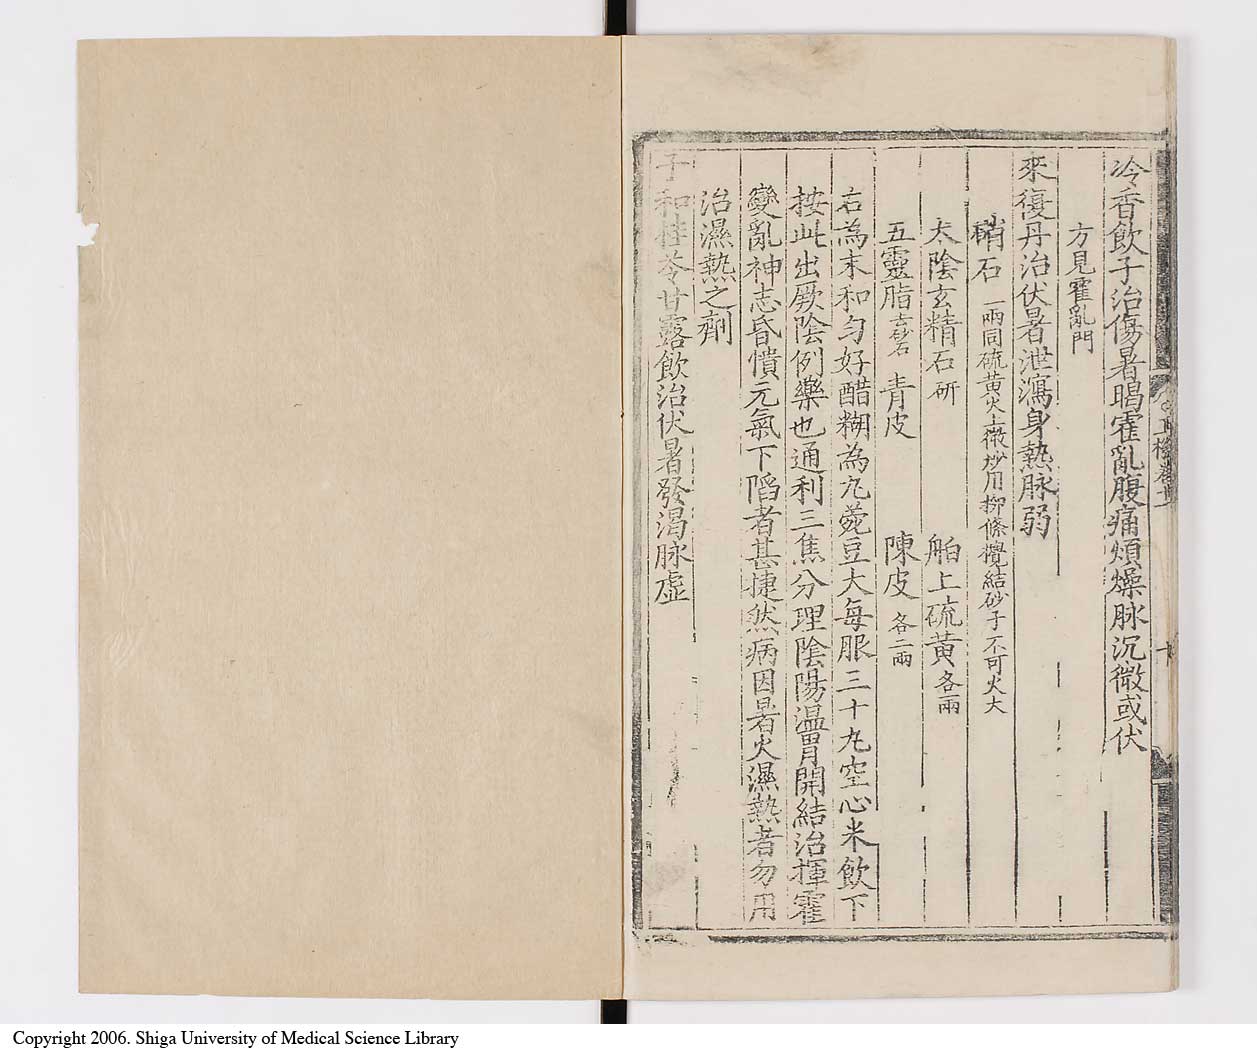 冷香飲子治傷暑暍霍亂腹痛煩燥脉沉微或伏
方見霍亂門
來復丹治伏暑泄瀉身熱脉弱
硝石 一兩同硫黃火上微炒用柳條攪結砂子不可火大
太陰玄精石 研 舶上硫黃 各一兩
五靈脂 去砂石 青皮 陳皮 各二兩
右為末和勻好醋糊為丸豌豆大每服三十丸空心米飲下
按此出厥陰例藥也通利三焦分理陰陽溫胃開結治揮霍
變亂神志昏憒元氣下陷者甚捷然病因暑火濕熱者勿用
治濕熱之劑
子和桂苓甘露飲治伏暑發渴脉虛
Copyright 2006. Shiga University of Medical Science Library